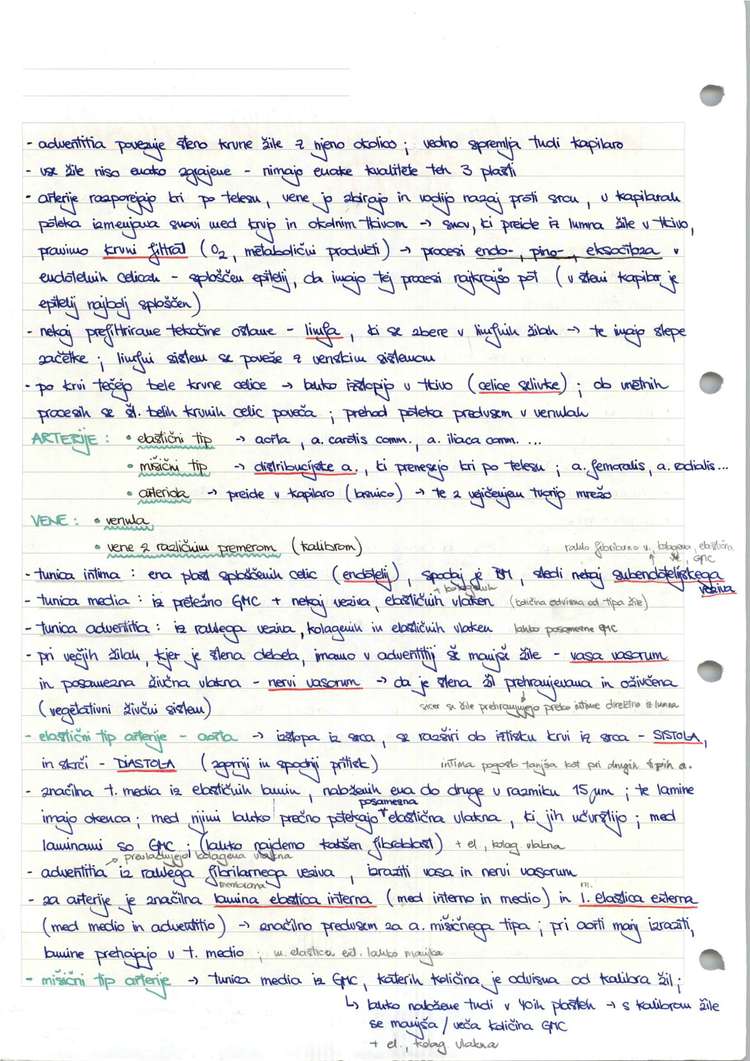 - adventitia povezuje steno krvne žile z njeno okolico ; vedno spremlja tudi kapilaro
- vse žile niso enako zgrajene - nimajo enake kvalitete teh 3 plasti
- arterije razporejajo kri po telesu, vene jo zbirajo in vodijo nazaj proti srcu, v kapilarah
poteka izmenjava snovi med krvjo in okolnim tkivom → snov, ki preide iz lumna žile v tkivo,
pravimo krvni filtrat (O₂, metabolični produkti) → procesi endo-, pino-, eksocitoza v
endotelnih celicah - sploščen epitelij, da imajo tej procesi najkrajšo pot (v steni kapilar je
epitelij najbolj sploščen)
- nekaj prefiltrirane tekočine ostane - limfa, ki se zbere v limfnih žilah → te imajo slepe
začetke ; limfni sistem se poveže z venskim sistemom
- po krvi tečejo bele krvne celice → lahko izstopijo v tkivo (celice selivke) ; ob vnetnih
procesih se št. belih krvnih celic poveča ; prehod poteka predvsem v venulah
ARTERIJE : • elastični tip → aorta, a. carotis comm., a. iliaca comm. ...
• mišični tip → distribucijske a., ki prenesejo kri po telesu ; a. femoralis, a. radialis...
• arteriola → preide v kapilaro (lasnico) → te z vejičenjem tvorijo mrežo
VENE : • venula
• vene z različnim premerom (kalibrom)
rahlo fibrilarno v., kolagena, elastična
GMC
- tunica intima : ena plast sploščenih celic (endotelij), spodaj je BM, sledi nekaj subendotelijskega
veziva
+ kolagenih
- tunica media : iz pretežno GMC + nekaj veziva, elastičnih vlaken (količina odvisna od tipa žile)
- tunica adventitia : iz rahlega veziva, kolagenih in elastičnih vlaken lahko posamezne GMC
- pri večjih žilah, kjer je stena debela, imamo v adventitiji še manjše žile - vasa vasorum
in posamezna živčna vlakna - nervi vasorum → da je stena žil prehranjevana in oživčena
(vegetativni živčni sistem) sicer se žile prehranjujejo preko intime direktno iz lumna
- elastični tip arterije - aorta → izstopa iz srca, se razširi ob iztisku krvi iz srca - SISTOLA,
in skrči - DIASTOLA (zgornji in spodnji pritisk) intima pogosto tanjša kot pri drugih tipih a.
- značilna t. media iz elastičnih lamin, naloženih ena do druge v razmiku 15 µm ; te lamine
posamezna
imajo okenca ; med njimi lahko prečno potekajo elastična vlakna, ki jih učvrstijo ; med
laminami so GMC ; (lahko najdemo kakšen fibroblast) + el., kolag. vlakna
prevladujejo kolagena vlakna
- adventitia iz rahlega fibrilarnega veziva, izraziti vasa in nervi vasorum
membrana m.
- za arterije je značilna lamina elastica interna (med interno in medio) in l. elastica externa
(med medio in adventitio) → značilno predvsem za a. mišičnega tipa ; pri aorti manj izraziti,
lamine prehajajo v t. medio ; m. elastica ext. lahko manjka
- mišični tip arterije → tunica media iz GMC, katerih količina je odvisna od kalibra žil ;
↳ lahko naložene tudi v 40ih plasteh → s kalibrom žile
se manjša / veča količina GMC
+ el., kolag vlakna